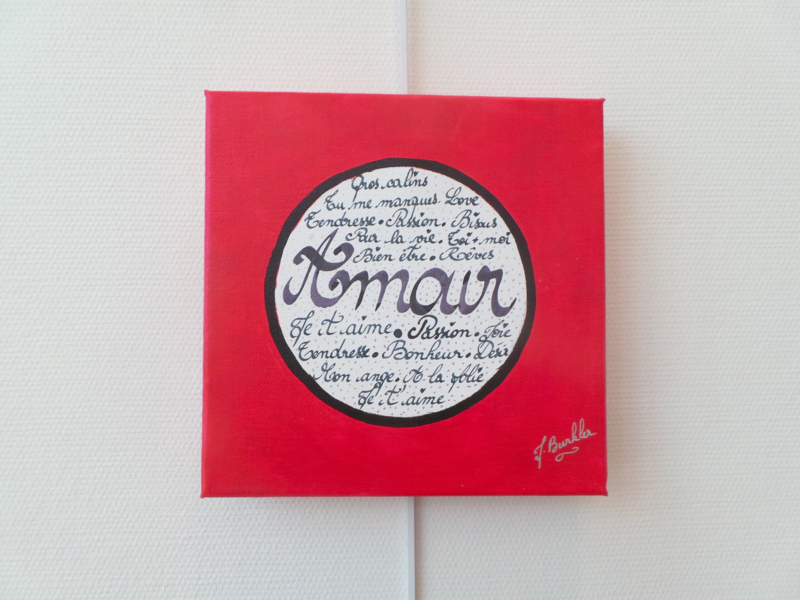 Gros calins
Tu me manques. Love
Tendresse • Passion • Bisous
Par la vie • Toi + moi
Bien être • Rêves
Amour
Je t'aime • Passion • Joie
Tendresse • Bonheur • Désir
Mon ange • A la folie
Je t'aime
J. Burkler